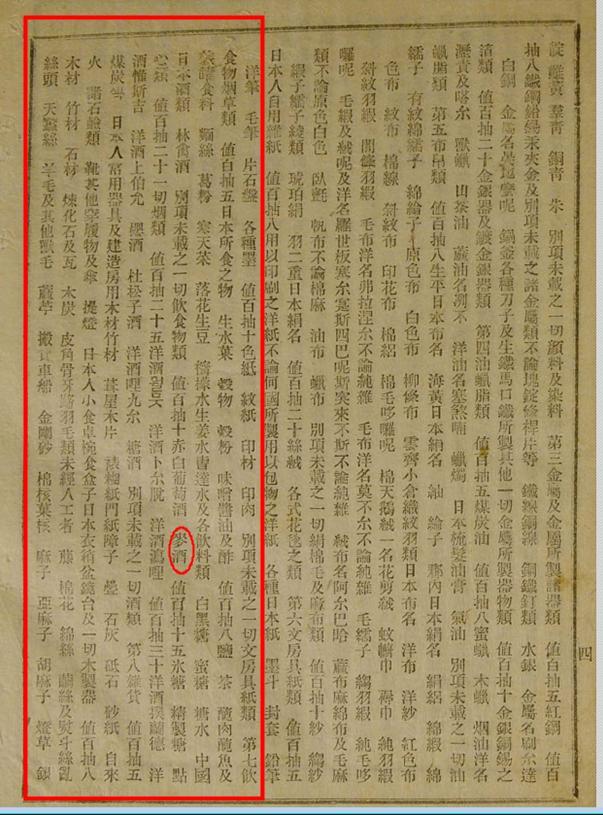 靛 雌黃 羣青 銅青 朱 別項未載之一切顔料及染料 第三金屬及金屬所製諸器類 値百抽五紅銅 値百
抽八鐵鋼鉛錫未夾金及別項未載之諸金屬類不論塊錠條桿片等 鐵線銅線 鋼鐵釘類 水銀 金屬名
白銅 金屬名 鍋釜各種刀子及生鐵馬口鐵所製其他一切金屬所製器物類 値百抽十金銀銅錫之
箔類 値百抽二十金銀器及鍍金銀器類 第四油蠟脂類 値百抽五煤炭油 値百抽八蜜蠟 木蠟 烟油洋名
瀝青及 獸蠟 山茶油 油名 洋油名 蠟燭 日本梳髮油膏 氣油 別項未載之一切油
蠟脂類 第五布帛類 値百抽八生平日本布名 海黃日本絹名 紬 綸子 日本絹名 絹絽 綿緞 綿
繻子 有紋綿繻子 綿綸子 原色布 白色布 柳條布 雲齊小倉織紋羽類日本布名 洋布 洋紗 紅色布
色布 紋布 棉線 斜紋布 印花布 棉絽 棉毛哆囉呢 棉天鵝絨一名花剪絨 蚊幮巾 褥巾 純羽緞
斜紋羽緞 羽緞 毛布洋名 不論純雜 毛布洋名 不論純雜 毛繻子 縐羽緞 純毛哆
囉呢 毛緞及絨呢及洋名 不論純雜 絨布名阿尔巴哈 蔴布麻綿布及毛麻
類不論原色白色 臥氈 帆布不論棉麻 油布 蠟布 別項未載之一切絹棉毛及麻布類 値百抽十紗 縐紗
緞子繻子綾類 琥珀絹 羽二重日本絹名 値百抽二十絲絨 各式花毯之類 第六文房具紙類 値百抽五
日本人自用雜紙 値百抽八用以印刷之洋紙不論何國所製用以包物之洋紙 各種日本紙 墨斗 封套 鉛筆
洋筆 毛筆 片石盤 各種墨 値百抽十色紙 紋紙 印材 印肉 別項未載之一切文房具紙類 第七飲
食物烟草類 値百抽五日本所食之物 生水菓 穀物 穀粉 味噌醬油及酢 値百抽八鹽 茶 醃肉醃魚及
諸食料 麵絲 葛粉 寒天菜 落花生豆 水生姜水曹達水及各飮料類 白黑糖 蜜糖 糖水 中國
日本酒類 林禽酒 別項未載之一切飮食物類 値百抽十赤白葡萄酒 麥酒 値百抽十五氷糖 精製糖 點
心類 値百抽二十一切烟類 値百抽二十五洋酒 洋酒 洋酒 値百抽三十洋酒撲蘭德 洋
酒惟斯吉 洋酒上伯允 櫻酒 杜松子酒 洋酒哩九尔 糖酒 別項未載之一切酒類 第八雜貨 値百抽五
煤炭 日本人常用器具及建造房用木材竹材 葺屋木片 紙門紙障子 疊 石灰 砥石 砂紙 自來
火 諸石鹼類 靴其他穿履物及傘 提燈 日本人小食卓椀食盒子日本衣箱盆鏡台及一切木製器 値百抽八
木材 竹材 石材 煉化石及瓦 木炭 皮角骨牙 羽毛類未經人工者 藤 棉花 綿絲 繭絲及熨斗絲亂
絲頭 天蠶絲 羊毛及其他獸毛 搬貨車船 金剛砂 棉核菜核 麻子 亞麻子 胡麻子 燈草 銀
四